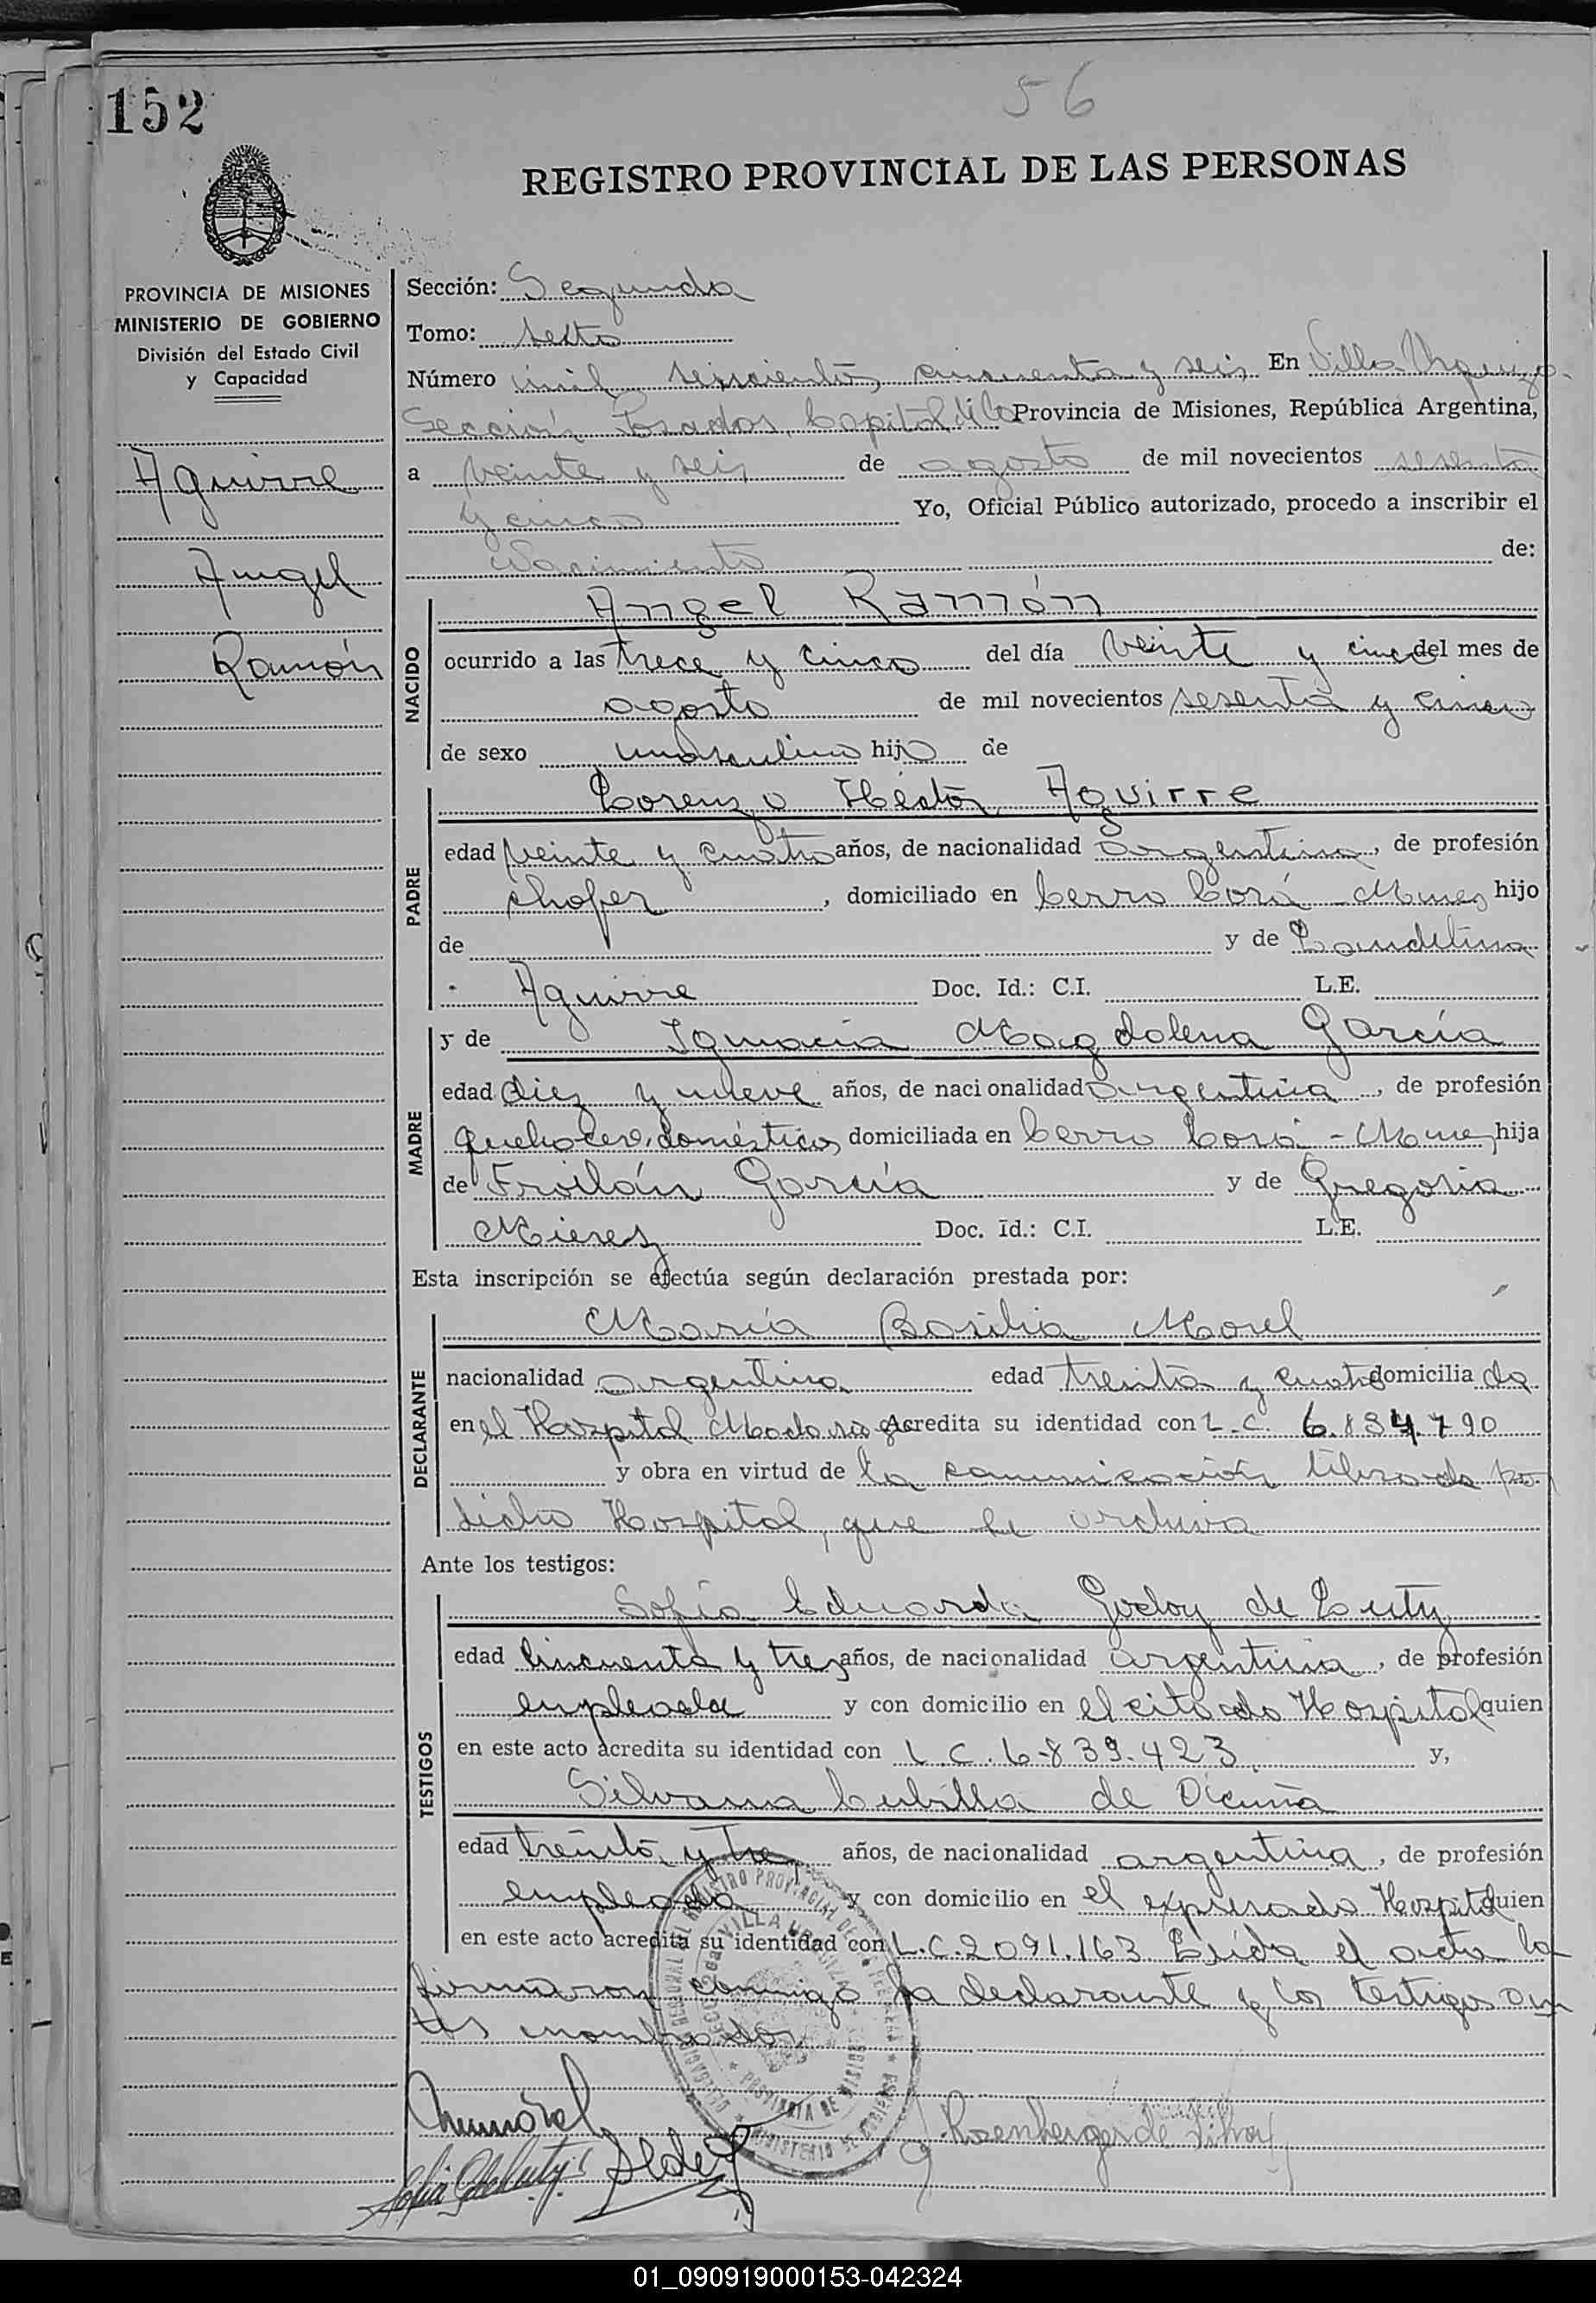 152
56
REGISTRO PROVINCIAL DE LAS PERSONAS
PROVINCIA DE MISIONES
MINISTERIO DE GOBIERNO
División del Estado Civil
y Capacidad
Aguirre
Angel
Ramón
Sección: Segunda
Tomo: sexto
Número mil seiscientos cincuenta y seis En Villa Urquiza-
Sección Posadas, Capital de la Provincia de Misiones, República Argentina,
a veinte y seis de agosto de mil novecientos sesenta
y cinco Yo, Oficial Público autorizado, procedo a inscribir el
Nacimiento de:
NACIDO
Angel Ramón
ocurrido a las trece y cinco del día veinte y cinco del mes de
agosto de mil novecientos sesenta y cinco
de sexo masculino hijo de
PADRE
Lorenzo Héctor Aguirre
edad veinte y cuatro años, de nacionalidad argentina, de profesión
chofer, domiciliado en Cerro Corá - Mnes hijo
de y de Laudelina
Aguirre Doc. Id.: C.I. L.E.
MADRE
y de Ignacia Magdalena García
edad diez y nueve años, de nacionalidad argentina, de profesión
quehaceres domésticos domiciliada en Cerro Corá - Mnes, hija
de Froilán García y de Gregoria
Mieres Doc. Id.: C.I. L.E.
Esta inscripción se efectúa según declaración prestada por:
DECLARANTE
María Basilia Morel
nacionalidad argentina edad treinta y cuatro domicilia da
en el Hospital Madariaga Acredita su identidad con L.C. 6.834.790
y obra en virtud de la comunicación librada por
dicho Hospital, que se archiva
Ante los testigos:
TESTIGOS
Sofía Eduarda Godoy de Luty
edad cincuenta y tres años, de nacionalidad argentina, de profesión
empleada y con domicilio en el citado Hospital quien
en este acto acredita su identidad con L.C. 6.839.423 y,
Silvana Cubilla de Vicuña
edad treinta y tres años, de nacionalidad argentina, de profesión
empleada y con domicilio en el expresado Hospital quien
en este acto acredita su identidad con L.C. 2091.163 Leída el acta la
firmaron conmigo la declarante y los testigos an
tes nombrados
PROVINCIA DE MISIONES
01_090919000153-042324